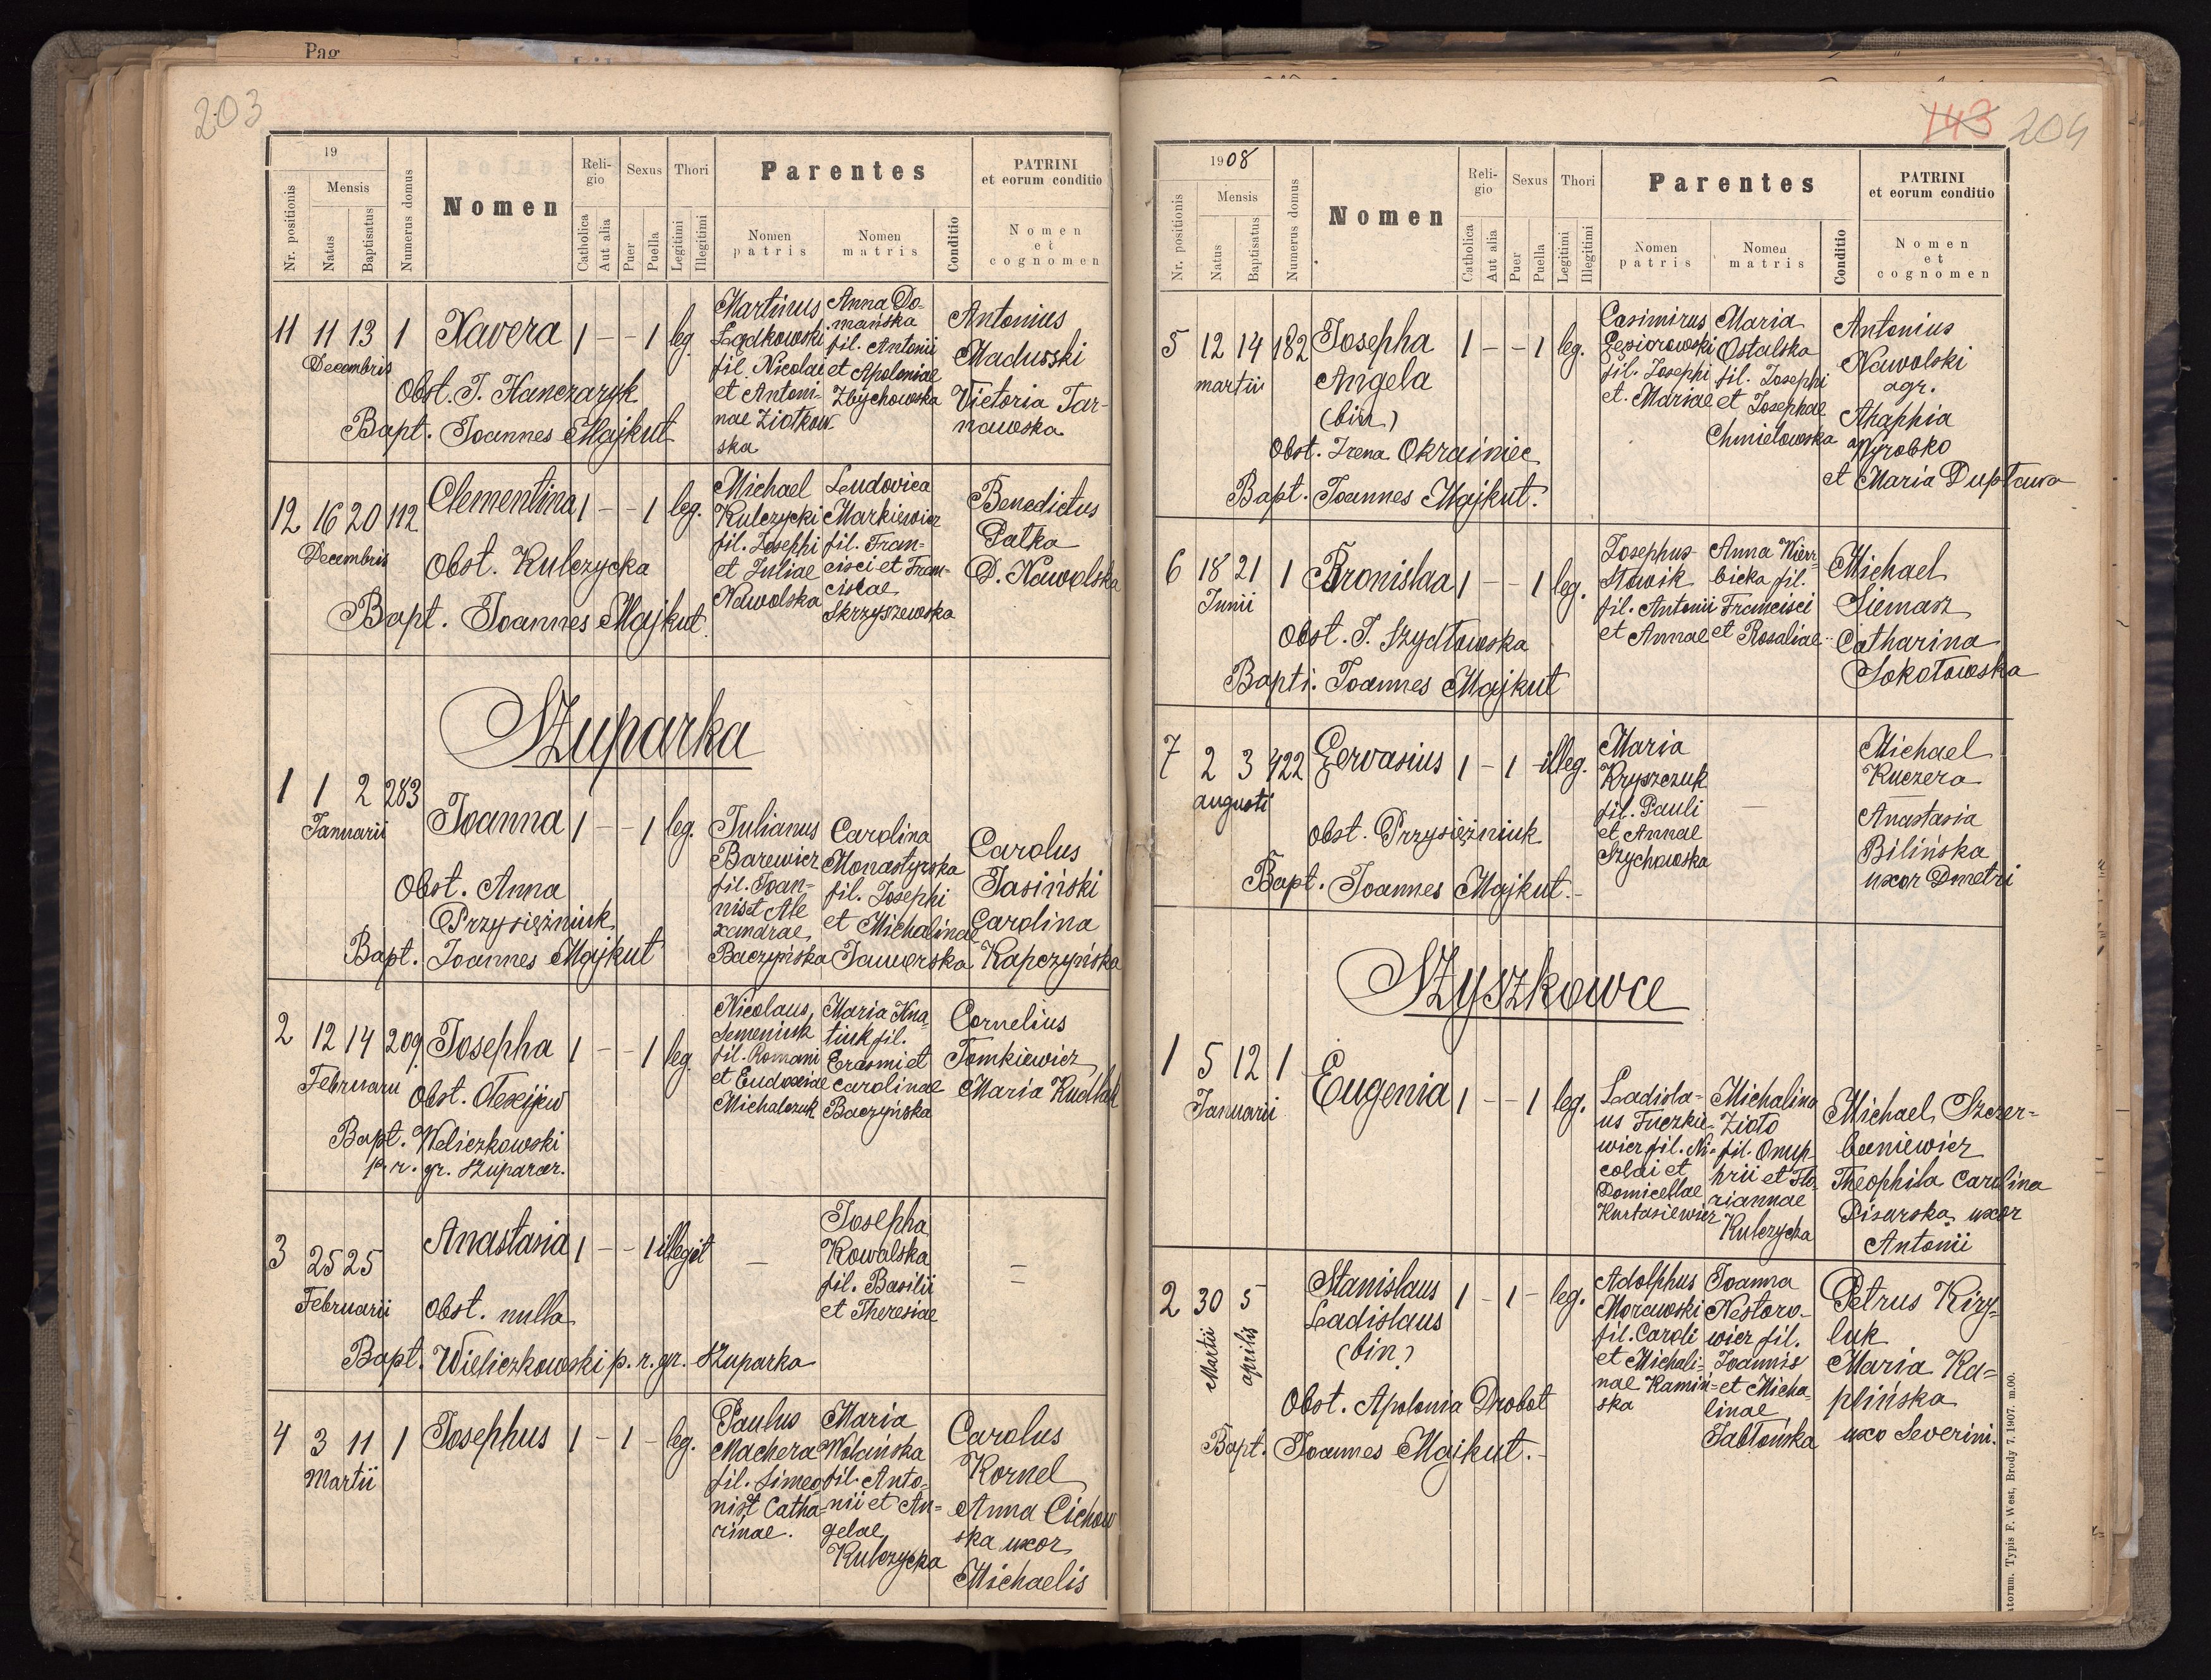 Pag
203
19
Nr. positionis
Mensis
Natus
Baptisatus
Numerus domus
Nomen
Reli-
gio
Catholica
Aut alia
Sexus
Puer
Puella
Thori
Legitimi
Illegitimi
Parentes
Nomen
patris
Nomen
matris
Conditio
PATRINI
et eorum conditio
Nomen
et
cognomen
11 11 13 1 Xavera 1 – – 1 leg.
Decembris
Obst. J. Hanczaryk
Bapt. Joannes Majkut
Martinus
Lądkowski
fil. Nicolai
et Antoni-
nae Ziołkow
ska
Anna Do-
mańska
fil. Antonii
et Apoloniae
Zbychowska
Antonius
Madurski
Victoria Tar-
nawska
12 16 20 112 Clementina 1 – – 1 leg.
Decembris
Obst. Kulczycka
Bapt. Joannes Majkut
Michael
Kulczycki
fil. Josephi
et Juliae
Nawolska
Ludovica
Markiewicz
fil. Fran-
cisci et Fran-
ciscae
Skrzyszewska
Benedictus
Patka
D. Nawolska
Szuparka
1 1 2 283 Joanna 1 – – 1 leg.
Januarii
Obst. Anna
Przysiężniuk
Bapt. Joannes Majkut
Julianus
Barewicz
fil. Joan-
nis et Ale
xandrae
Baczyńska
Carolina
Monastyrska
fil. Josephi
et Michalinae
Jaworska
Carolus
Jasiński
Carolina
Kapczyńska
2 12 14 209. Josepha 1 – – 1 leg.
Februarii
Obst. Ołeksijew
Bapt. Weliczkowski
p. r. gr. Szuparcer.
Nicolaus
Semeniuk
fil. Romani
et Eudoxiae
Michalczuk
Maria Hna-
tiuk fil.
Erasmi et
Carolinae
Baczyńska
Cornelius
Tomkiewicz
Maria Kudlak
3 25 25 Anastasia 1 – – 1 illegit
Februarii
Obst. nulla
Bapt. Wieliczkowski p. r. gr. Szuparka
–
Josepha
Kowalska
fil. Basilii
et Theresiae
=
4 3 11 1 Josephus 1 – 1 – leg.
Martii
Paulus
Machera
fil. Simeo-
nis et Catha-
rinae.
Maria
Wolańska
fil. Anto-
nii et An-
gelae
Kulczycka
Carolus
Kornel
Anna Cichow
ska uxor
Michaelis
143 204
1908
Nr. positionis
Mensis
Natus
Baptisatus
Numerus domus
Nomen
Reli-
gio
Catholica
Aut alia
Sexus
Puer
Puella
Thori
Legitimi
Illegitimi
Parentes
Nomen
patris
Nomen
matris
Conditio
PATRINI
et eorum conditio
Nomen
et
cognomen
5 12 14 182 Josepha 1 – – 1 leg.
martii
Angela
(bin.)
Obst. Irena Okrainiec
Bapt. Joannes Majkut.
Casimirus
Gęsiorowski
fil. Josephi
et Mariae
Maria
Ostalska
fil. Josephi
et Josephae
Chmielowska
Antonius
Nawolski
agr.
Ahaphia
Wyrobko
et Maria Duptawa
6 18 21 1 Bronislaa 1 – – 1 leg.
Junii
Obst. J. Szydłowska
Bapti. Joannes Majkut
Josephus
Słowik
fil. Antonii
et Annae
Anna Wierz-
bicka fil.
Francisci
et Rosaliae
Michael
Siemasz
Catharina
Sokołowska
7 2 3 422 Gervasius 1 – 1 – illeg.
augusti
Obst. Przysiężniuk
Bapt. Joannes Majkut.–
Maria
Kryszczuk
fil. Pauli
et Annae
Szychowska
–
Michael
Kuczera
Anastasia
Bilińska
uxor Dmetri
Szyszkowce
1 5 12 1 Eugenia 1 – – 1 leg.
Januarii
Ladisla-
us Fuczkie-
wicz fil. Ni-
colai et
Domicellae
Kurtasiewicz
Michalina
Zioło
fil. Onup-
hrii et Flo-
riannae
Kulczycka
Michael Szczer-
baniewicz
Theophila Carolina
Pisarska uxor
Antonii
2 30 5 Stanislaus 1 – 1 – leg.
Martii
aprilis
Ladislaus
(bin.)
Obst. Apolonia Drobot
Bapt. Joannes Majkut.–
Adolphus
Morawski
fil. Caroli
et Michali-
nae Kamiń-
ska
Joanna
Nestoro-
wicz fil.
Joannis
et Micha-
linae
Jabłońska
Petrus Kiry-
luk
Maria Ka-
plińska
uxo Severini.
atorum. Typis F. West, Brody 7. 1907. m.00.